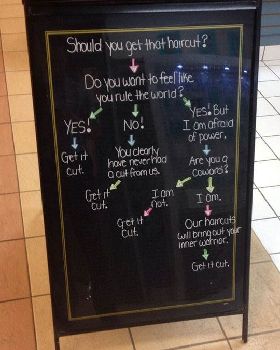 Should you get that haircut?
Do you want to feel like
you rule the world?
YES!
NO!
YES! But
I am afraid
of power.
Get it
cut.
You clearly
have never had
a cut from us.
Are you a
coward?
Get it
cut.
I am
not.
I am.
Get it
cut.
Our haircuts
will bring out your
inner warrior.
Get it cut.